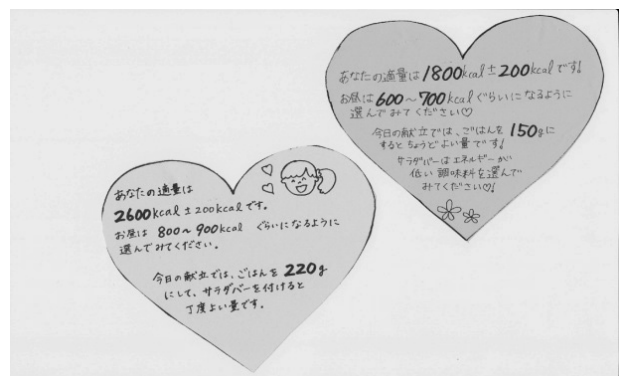 あなたの適量は1800kcal±200kcalです!
お昼は600~700kcalぐらいになるように
選んでみてください♡
今日の献立では、ごはんを150gに
するとちょうどよい量です!
サラダバーはエネルギーが
低い調味料を選んで
みてください♡!
あなたの適量は
2600kcal±200kcalです。
お昼は 800~900kcal ぐらいになるように
選んでみてください。
今日の献立では、ごはんを220g
にして、サラダバーを付けると
丁度よい量です。